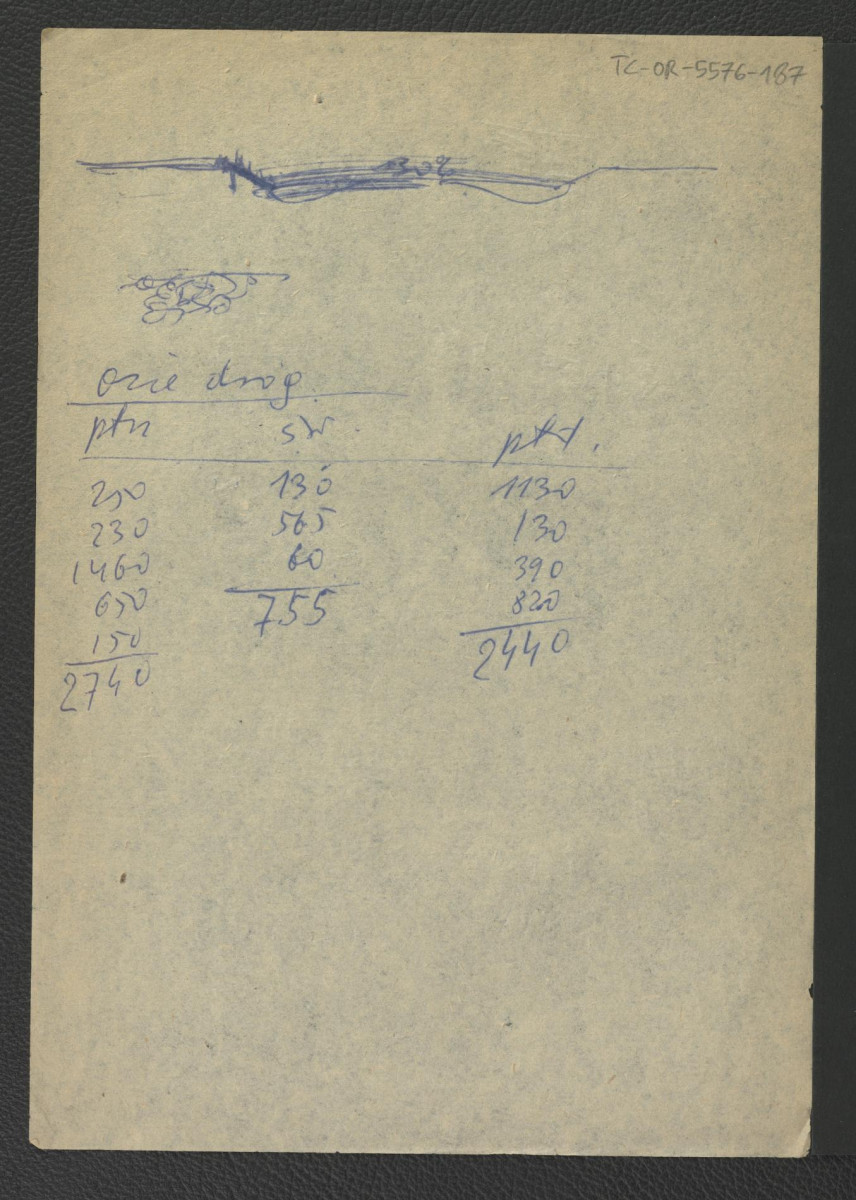 TC-OR-5576-187
30%
osie dróg
płn sw płd.
250 130 1130
230 565 130
1460 60 390
650 755 820
150 2440
2740